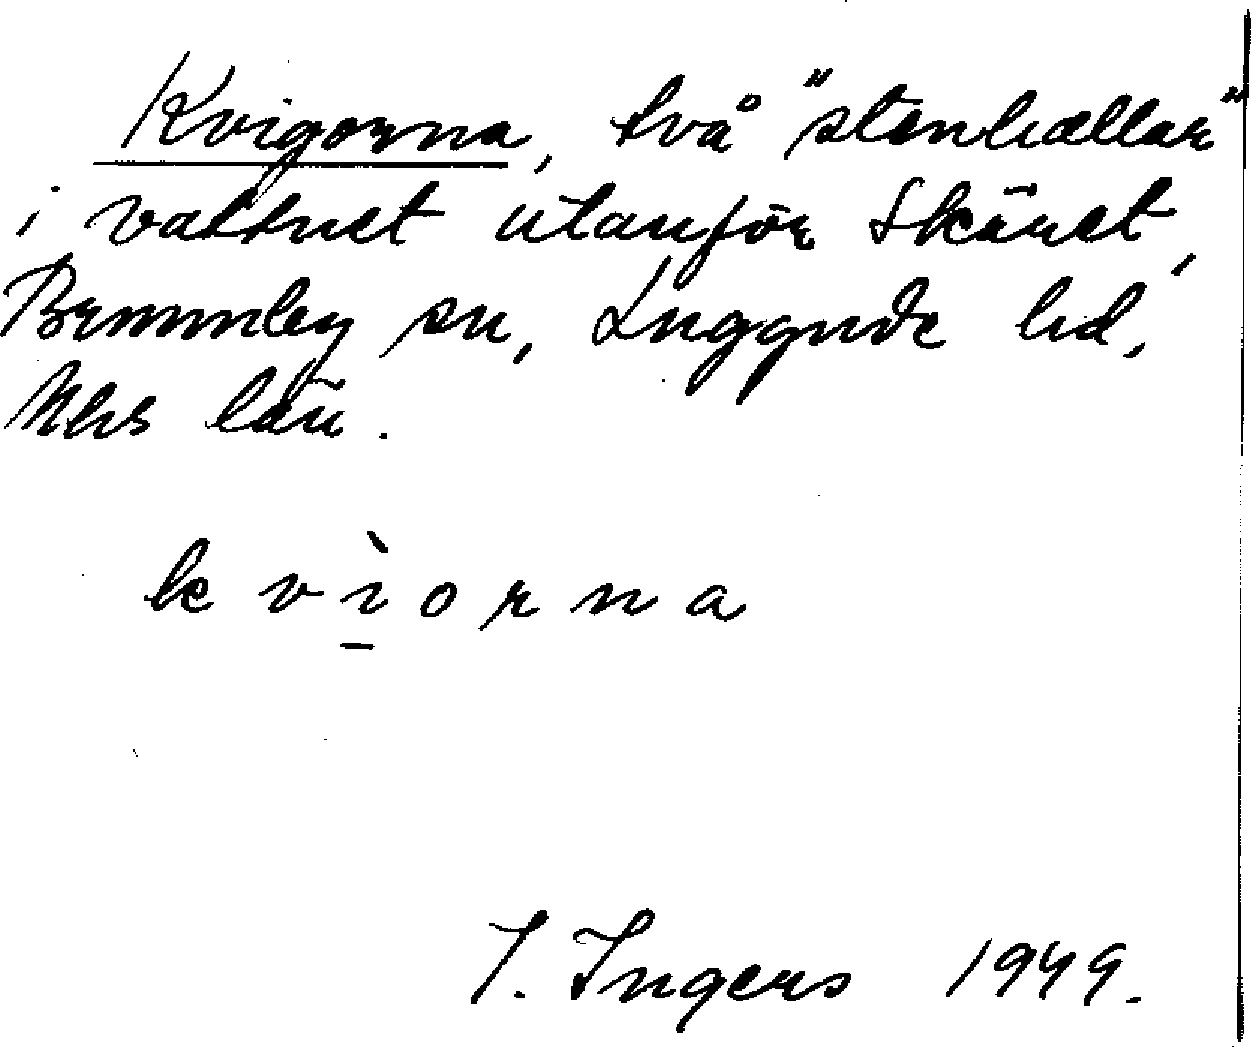 Kvigorna, två "stenhällar"
i vattnet utanför Skäret,
Brunnby sn, Luggude hd,
Mhs län.
k v ì o r n a
I. Ingers 1949.